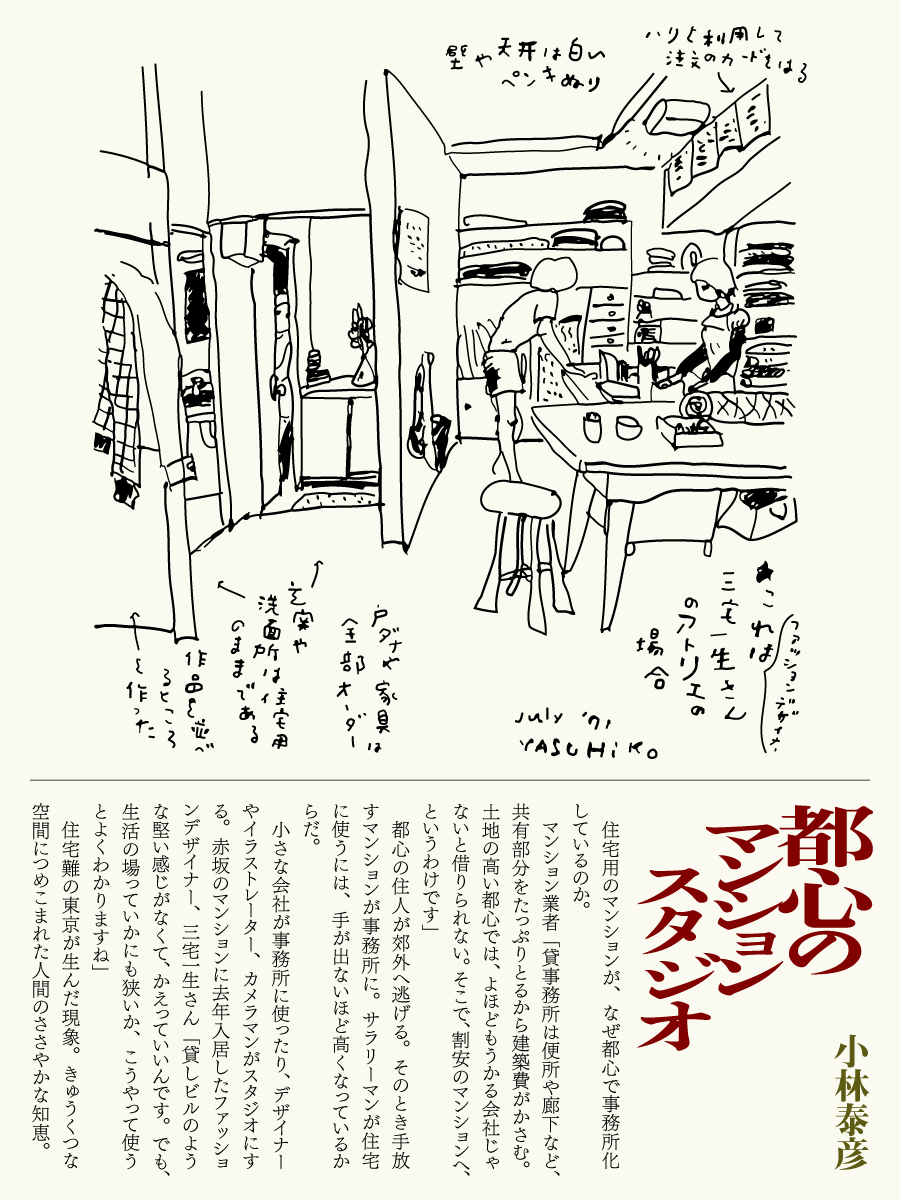 ハリを利用して
注文のカードをはる
壁や天井は白い
ペンキぬり
ファッションデザイナー
★これは
三宅一生さん
のアトリエの
場合
July '71
YASUHiKO
戸ダナや家具は
全部オーダー
玄関や
洗面所は住宅用
のままである
作品を並べ
るところ
を作った
都心の
マンション
スタジオ
小林泰彦
住宅用のマンションが、なぜ都心で事務所化
しているのか。
マンション業者「貸事務所は便所や廊下など、
共有部分をたっぷりとるから建築費がかさむ。
土地の高い都心では、よほどもうかる会社じゃ
ないと借りられない。そこで、割安のマンションへ、
というわけです」
都心の住人が郊外へ逃げる。そのとき手放
すマンションが事務所に。サラリーマンが住宅
に使うには、手が出ないほど高くなっているか
らだ。
小さな会社が事務所に使ったり、デザイナー
やイラストレーター、カメラマンがスタジオにす
る。赤坂のマンションに去年入居したファッショ
ンデザイナー、三宅一生さん「貸しビルのよう
な堅い感じがなくて、かえっていいんです。でも、
生活の場っていかにも狭いか、こうやって使う
とよくわかりますね」
住宅難の東京が生んだ現象。きゅうくつな
空間につめこまれた人間のささやかな知恵。